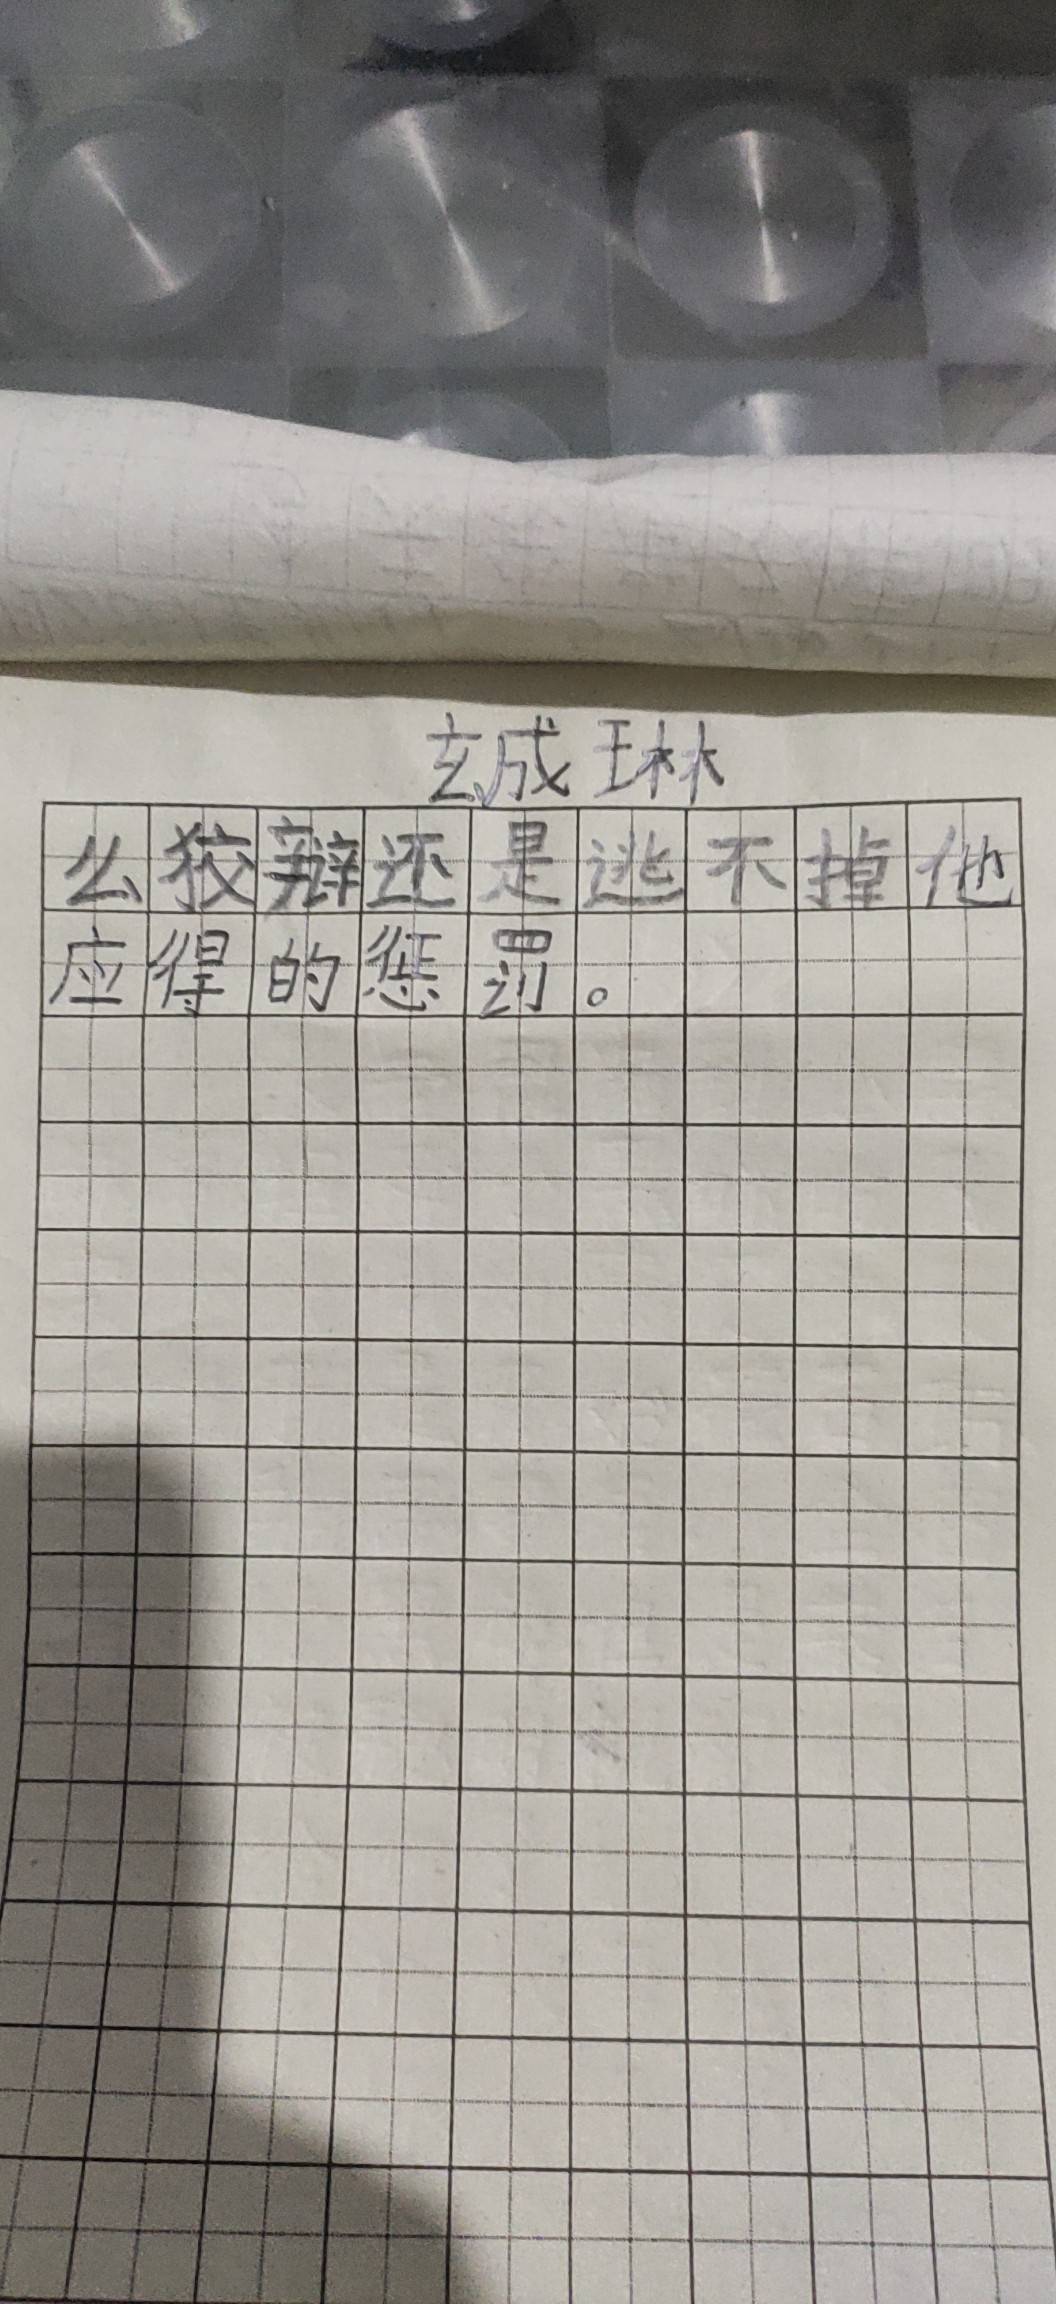 玄成琳
么狡辩还是逃不掉他
应得的惩罚。